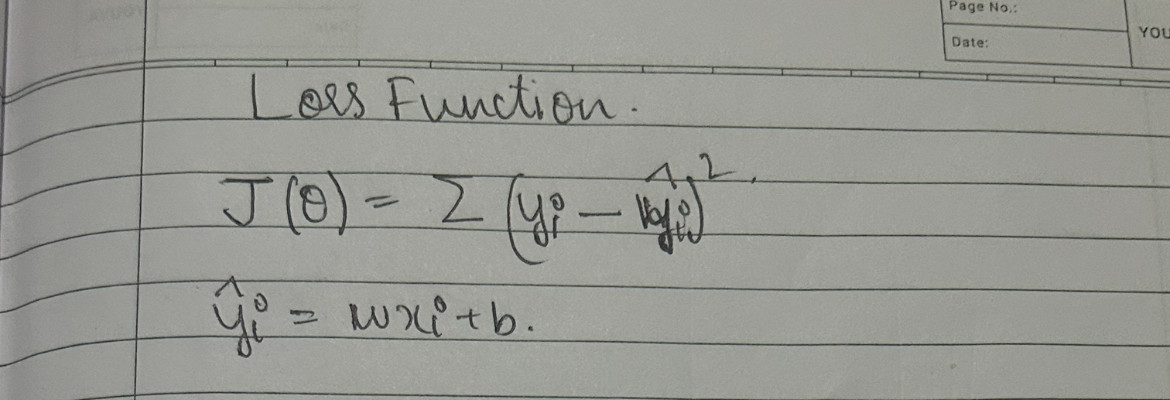 Page No.:
Date:
YOU
Loss Function.
J(θ) = Σ (yi - ŷi)².
ŷi = wxi + b.